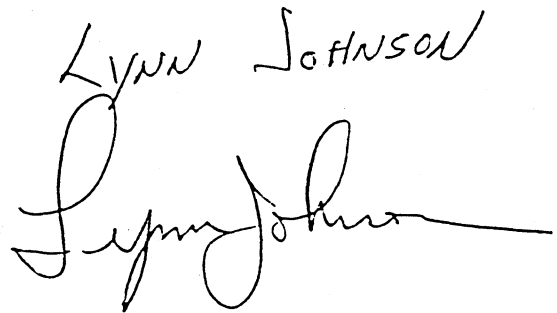 LYNN JOHNSON
Lynn Johnson